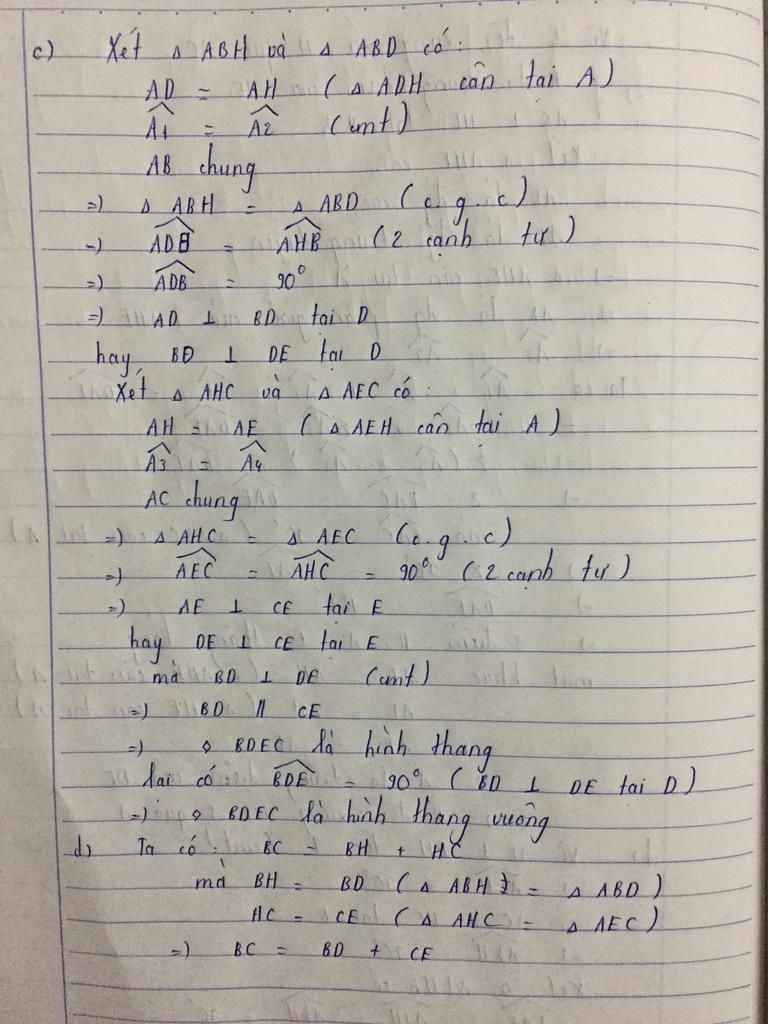 c) Xét △ ABH và △ ABD có:
AD = AH ( △ ADH cân tại A )
A1 = A2 (cmt)
AB chung
=) △ ABH = △ ABD ( c . g . c )
=) ADB = AHB ( 2 cạnh tư )
=) ADB = 90°
=) AD ⊥ BD tại D
hay BD ⊥ DE tại D
Xét △ AHC và △ AEC có:
AH = AE ( △ AEH cân tại A )
A3 = A4
AC chung
=) △ AHC = △ AEC (c . g . c)
=) AEC = AHC = 90° ( 2 cạnh tư )
=) AE ⊥ CE tại E
hay DE ⊥ CE tại E
mà BD ⊥ DE (cmt)
=) BD // CE
=) ◇ BDEC là hình thang
lại có: BDE = 90° ( BD ⊥ DE tại D )
=) ◇ BDEC là hình thang vuông
d) Ta có: BC = BH + HC
mà BH = BD ( △ ABH = △ ABD )
HC = CE ( △ AHC = △ AEC )
=) BC = BD + CE